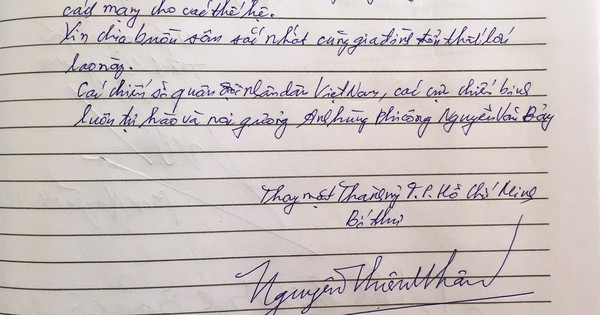 cách mạng cho các thế hệ.
Xin chia buồn sâu sắc nhất cùng gia đình tổn thất lớn
lao này.
Các chiến sĩ quân đội nhân dân Việt Nam, các cựu chiến binh
luôn tự hào và noi gương Anh hùng Phi công Nguyễn Văn Bảy
Thay mặt Thành ủy T.P. Hồ Chí Minh
Bí thư
Nguyễn Thiện Nhân